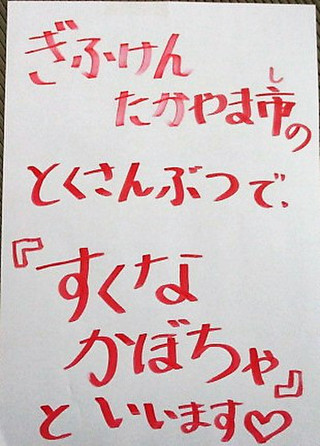 ぎふけん
たかやま市の
し
とくさんぶつで、
『すくな
かぼちゃ』
といいます♡